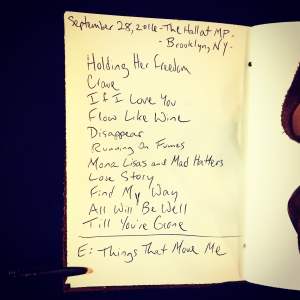 September 28, 2016 - The Hall at MP.
- Brooklyn, NY -
Holding Her Freedom
Crave
If I Love You
Flow Like Wine
Disappear
Running On Fumes
Mona Lisas and Mad Hatters
Love Story
Find My Way
All Will Be Well
Till You're Gone
E: Things That Move Me